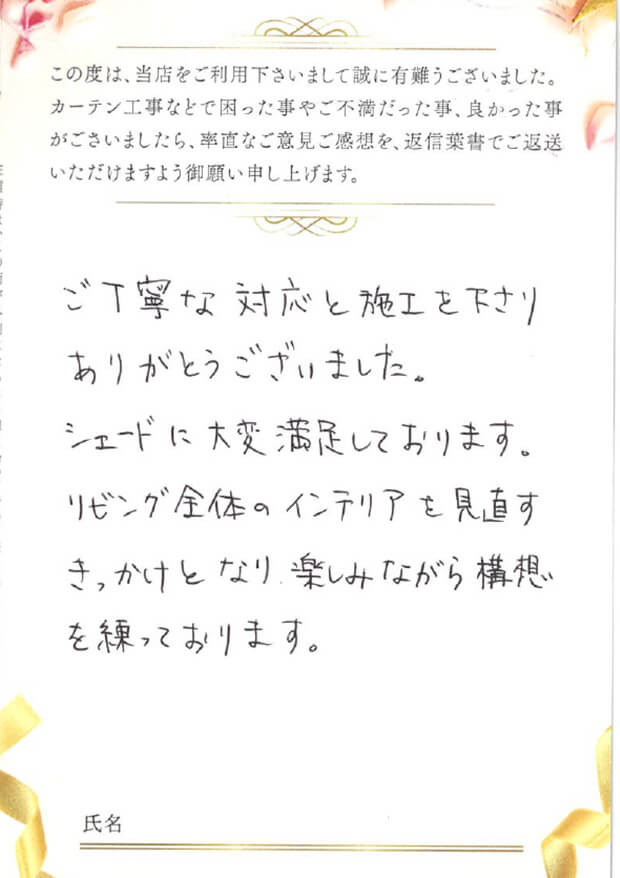 この度は、当店をご利用下さいまして誠に有難うございました。
カーテン工事などで困った事やご不満だった事、良かった事
がございましたら、率直なご意見ご感想を、返信葉書でご返送
いただけますよう御願い申し上げます。
ご丁寧な対応と施工を下さり
ありがとうございました。
シェードに大変満足しております。
リビング全体のインテリアを見直す
きっかけとなり、楽しみながら構想
を練っております。
氏名